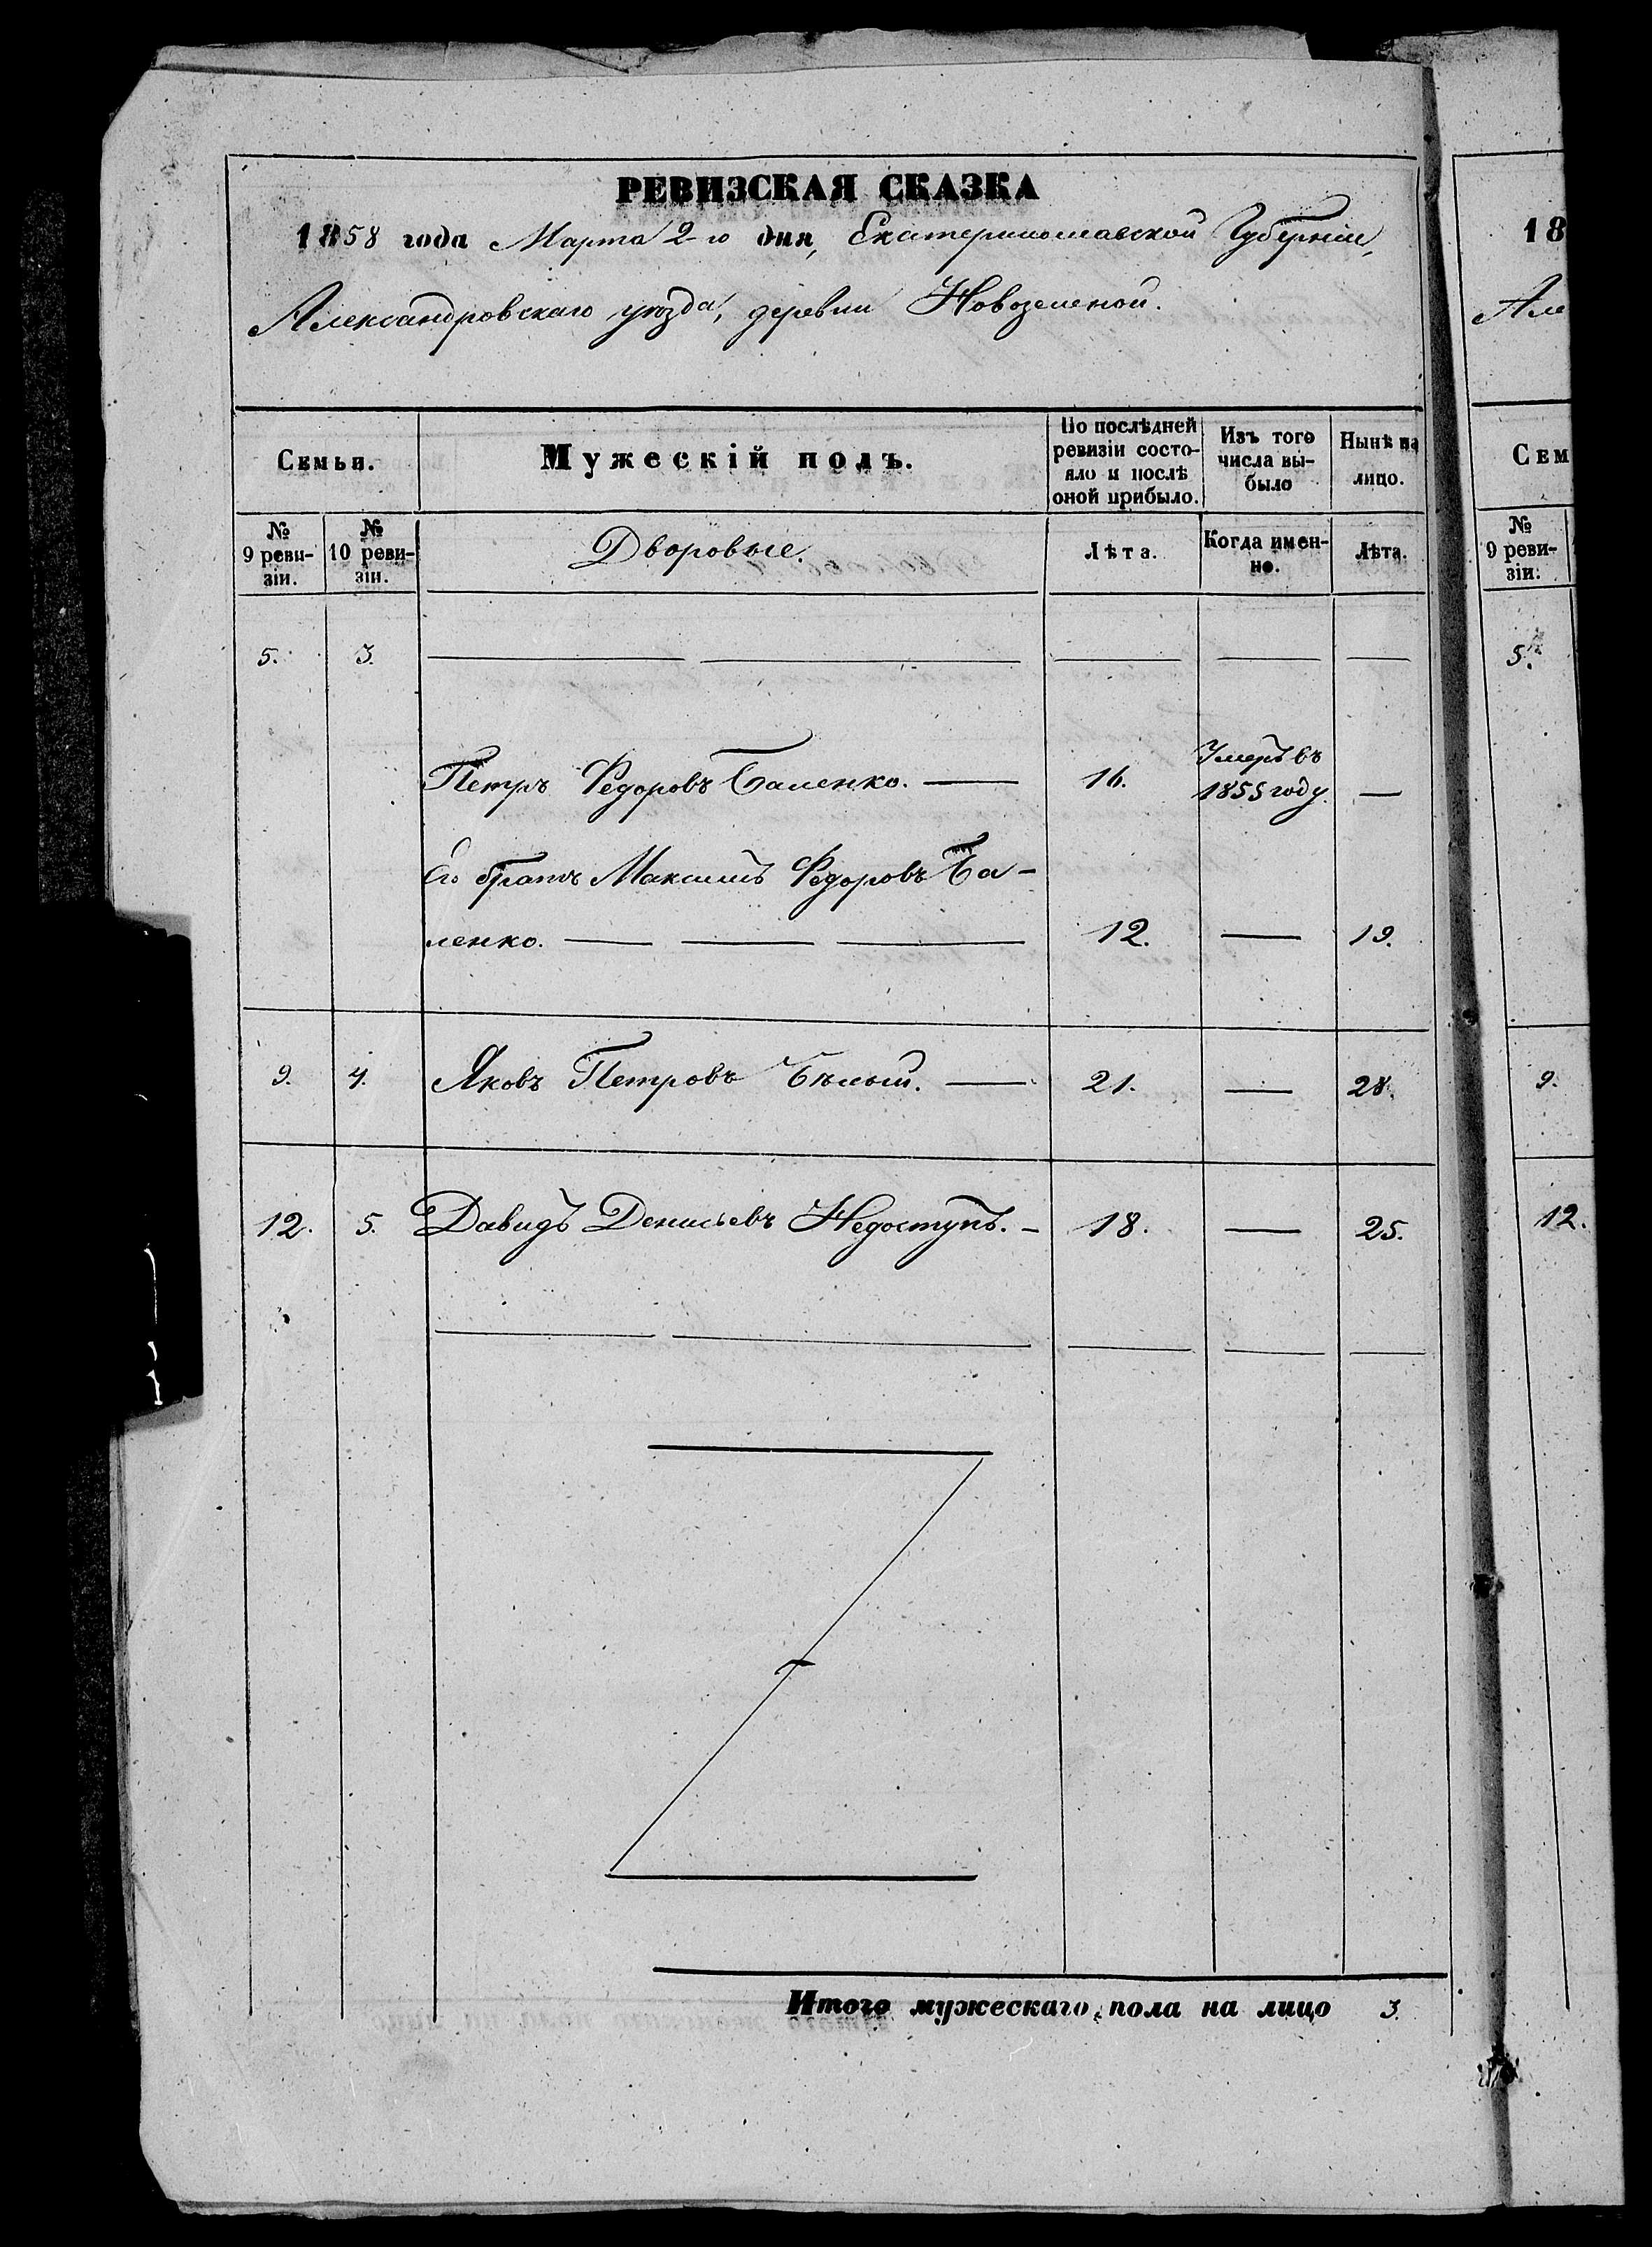 РЕВИЗСКАЯ СКАЗКА
1858 года Марта 2-го дня, Екатеринославской Губерніи,
Александровскаго уѣзда, деревни
Семьи.
Мужескій полъ.
По послѣдней ревизіи состо-
яло и послѣ оной прибыло.
Изъ того числа вы-
было
Нынѣ на лицо.
№ 9 реви-
зіи.
№ 10 реви-
зіи.
Дворовые.
Лѣта.
Когда имен-
но.
Лѣта.
5. 3.
Петръ Федоровъ Баленко. — 16. Умеръ въ
1855 году. —
Его братъ Максимъ Федоровъ Ба-
ленко. — — — 12. — 19.
9. 4. Яковъ Петровъ Бѣлый. — 21. — 28.
12. 5. Давидъ Денисьевъ Недоступъ. - 18. — 25.
Итого мужескаго пола на лицо 3.
18
Але
Сем
№
9 реви-
зіи.
5.
9.
12.